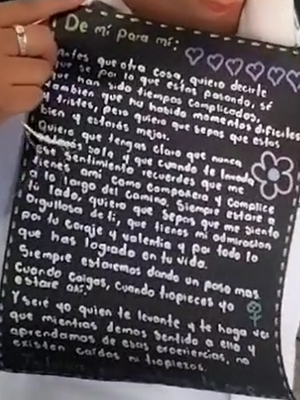 De mí para mí:
Antes que otra cosa, quiero decirle
que se por lo que estas pasando, sé
que han sido tiempos complicados,
tambien que ha habido momentos dificiles
y tristes, pero quiero que sepas que estas
bien y estarás mejor.
Quiero que tengas claro que nunca
sola y que cuando te invada
sentimiento recuerdes que me
tienes ami como compañera y complice
a lo largo del camino. Siempre estare a
tú lado, quiero que sepas que me siento
orgullosa de ti, que tienes mi admiracion
por tu coraje y valentia y por todo lo
que has logrado en tu vida.
Siempre estaremos dando un paso mas
cuando caigas, cuando tropieces yo
estare ahi.
Y seré yo quien te levante y te haga ver
que mientras demos sentido a ello y
aprendamos de esas experiencias, no
existen caidas ni tropiezos.